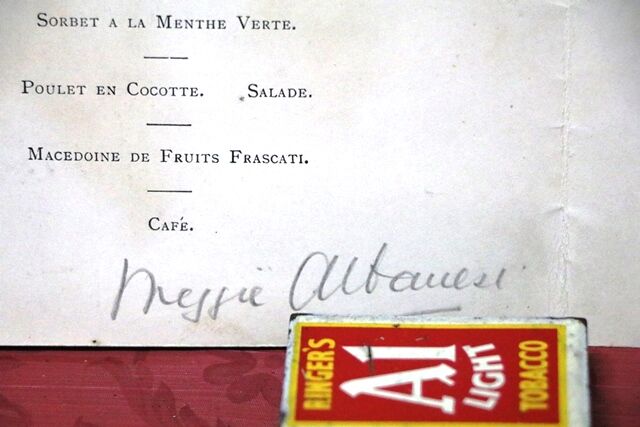 SORBET A LA MENTHE VERTE.
POULET EN COCOTTE. SALADE.
MACEDOINE DE FRUITS FRASCATI.
CAFÉ.
Meggie Albanesi
RINGER'S
A1
LIGHT
TOBACCO